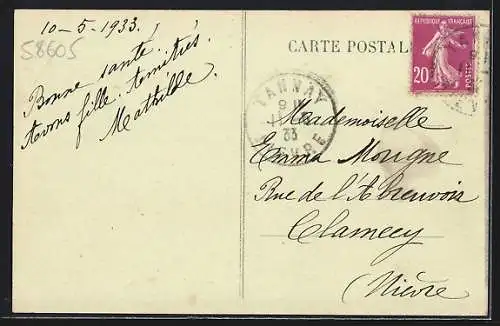 10-5-1933.
58605
Bonne santé.
Avons fille. Amitiés.
Mathilde.
CARTE POSTALE
REPUBLIQUE FRANÇAISE
20
POSTES
TANNAY
9
33
NIEVRE
Mademoiselle
Emma Mougne
Rue de l'Abreuvoir
Clamecy
(Nièvre)